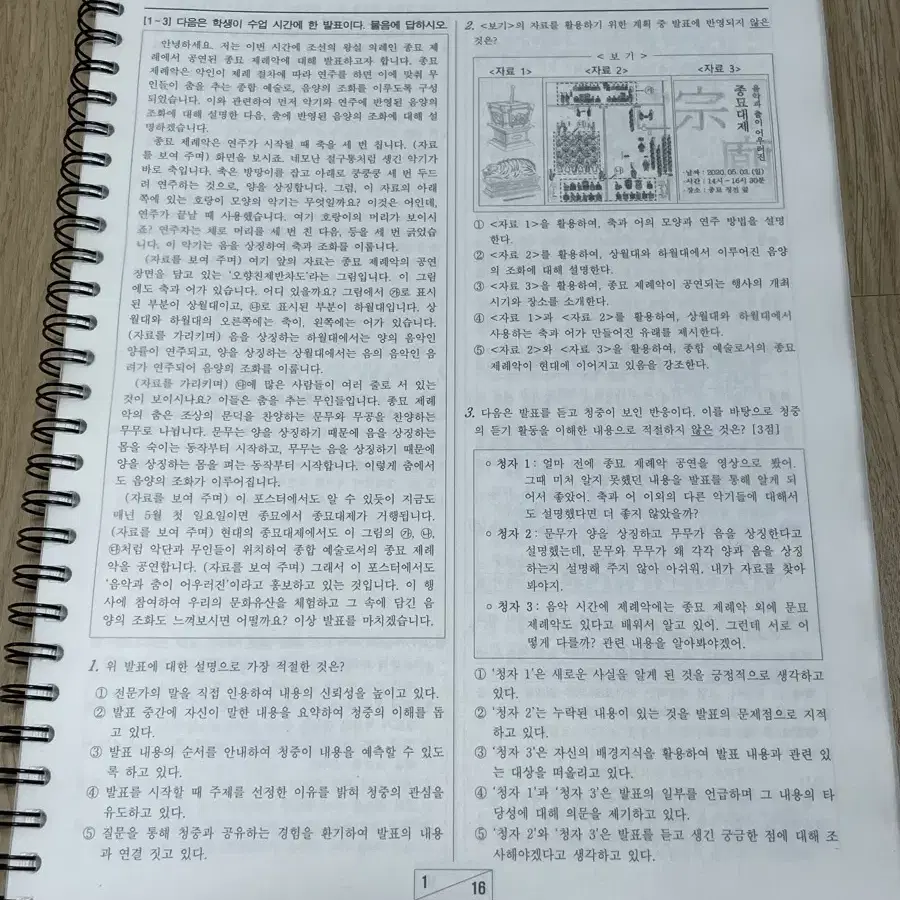 [1~3] 다음은 학생이 수업 시간에 한 발표이다. 물음에 답하시오.
안녕하세요. 저는 이번 시간에 조선의 왕실 의례인 종묘 제
례에서 공연된 종묘 제례악에 대해 발표하고자 합니다. 종묘
제례악은 악인이 제례 절차에 따라 연주를 하면 이에 맞춰 무
인들이 춤을 추는 종합 예술로, 음양의 조화를 이루도록 구성
되었습니다. 이와 관련하여 먼저 악기와 연주에 반영된 음양의
조화에 대해 설명한 다음, 춤에 반영된 음양의 조화에 대해 설
명하겠습니다.
종묘 제례악은 연주가 시작될 때 축을 세 번 칩니다. (자료
를 보여 주며) 화면을 보시죠. 네모난 절구통처럼 생긴 악기가
바로 축입니다. 축은 방망이를 잡고 아래로 쿵쿵쿵 세 번 두드
려 연주하는 것으로, 양을 상징합니다. 그럼, 이 자료의 아래
쪽에 있는 호랑이 모양의 악기는 무엇일까요? 이것은 어인데,
연주가 끝날 때 사용했습니다. 여기 호랑이의 머리가 보이시
죠? 연주자는 채로 머리를 세 번 친 다음, 등을 세 번 긁었습
니다. 이 악기는 음을 상징하여 축과 조화를 이룹니다.
(자료를 보여 주며) 여기 앞의 자료는 종묘 제례악의 공연
장면을 담고 있는 '오향친제반차도'라는 그림입니다. 이 그림
에도 축과 어가 있습니다. 어디 있을까요? 그림에서 ㉮로 표시
된 부분이 상월대이고, ㉯로 표시된 부분이 하월대입니다. 상
월대와 하월대의 오른쪽에는 축이, 왼쪽에는 어가 있습니다.
(자료를 가리키며) 음을 상징하는 하월대에서는 양의 음악인
양률이 연주되고, 양을 상징하는 상월대에서는 음의 음악인 음
려가 연주되어 음양의 조화를 이룹니다.
(자료를 가리키며) ㉰에 많은 사람들이 여러 줄로 서 있는
것이 보이시나요? 이들은 춤을 추는 무인들입니다. 종묘 제례
악의 춤은 조상의 문덕을 찬양하는 문무와 무공을 찬양하는
무무로 나뉩니다. 문무는 양을 상징하기 때문에 음을 상징하는
몸을 숙이는 동작부터 시작하고, 무무는 음을 상징하기 때문에
양을 상징하는 몸을 펴는 동작부터 시작합니다. 이렇게 춤에서
도 음양의 조화가 이루어집니다.
(자료를 보여 주며) 이 포스터에서도 알 수 있듯이 지금도
매년 5월 첫 일요일이면 종묘에서 종묘대제가 거행됩니다.
(자료를 보여 주며) 현대의 종묘대제에서도 이 그림의 ㉮, ㉯,
㉰처럼 악단과 무인들이 위치하여 종합 예술로서의 종묘 제례
악을 공연합니다. (자료를 보여 주며) 그래서 이 포스터에서도
'음악과 춤이 어우러진'이라고 홍보하고 있는 것입니다. 이 행
사에 참여하여 우리의 문화유산을 체험하고 그 속에 담긴 음
양의 조화도 느껴보시면 어떨까요? 이상 발표를 마치겠습니다.
1. 위 발표에 대한 설명으로 가장 적절한 것은?
① 전문가의 말을 직접 인용하여 내용의 신뢰성을 높이고 있다.
② 발표 중간에 자신이 말한 내용을 요약하여 청중의 이해를 돕
고 있다.
③ 발표 내용의 순서를 안내하여 청중이 내용을 예측할 수 있도
록 하고 있다.
④ 발표를 시작할 때 주제를 선정한 이유를 밝혀 청중의 관심을
유도하고 있다.
⑤ 질문을 통해 청중과 공유하는 경험을 환기하여 발표의 내용
과 연결 짓고 있다.
2. <보기>의 자료를 활용하기 위한 계획 중 발표에 반영되지 않은
것은?
<보 기>
<자료 1> <자료 2> <자료 3>
음악과 춤이 어우러진
종묘대제
宗
· 날짜 : 2020. 05. 03. (일)
· 시간 : 14시 ~ 16시 30분
· 장소 : 종묘 정전 앞
① <자료 1>을 활용하여, 축과 어의 모양과 연주 방법을 설명
한다.
② <자료 2>를 활용하여, 상월대와 하월대에서 이루어진 음양
의 조화에 대해 설명한다.
③ <자료 3>을 활용하여, 종묘 제례악이 공연되는 행사의 개최
시기와 장소를 소개한다.
④ <자료 1>과 <자료 2>를 활용하여, 상월대와 하월대에서
사용하는 축과 어가 만들어진 유래를 제시한다.
⑤ <자료 2>와 <자료 3>을 활용하여, 종합 예술로서의 종묘
제례악이 현대에 이어지고 있음을 강조한다.
3. 다음은 발표를 듣고 청중이 보인 반응이다. 이를 바탕으로 청중
의 듣기 활동을 이해한 내용으로 적절하지 않은 것은? [3점]
○ 청자 1 : 얼마 전에 종묘 제례악 공연을 영상으로 봤어.
그때 미처 알지 못했던 내용을 발표를 통해 알게 되
어서 좋았어. 축과 어 이외의 다른 악기들에 대해서
도 설명했다면 더 좋지 않았을까?
○ 청자 2 : 문무가 양을 상징하고 무무가 음을 상징한다고
설명했는데, 문무와 무무가 왜 각각 양과 음을 상징
하는지 설명해 주지 않아 아쉬워. 내가 자료를 찾아
봐야지.
○ 청자 3 : 음악 시간에 제례악에는 종묘 제례악 외에 문묘
제례악도 있다고 배워서 알고 있어. 그런데 서로 어
떻게 다를까? 관련 내용을 알아봐야겠어.
① '청자 1'은 새로운 사실을 알게 된 것을 긍정적으로 생각하고
있다.
② '청자 2'는 누락된 내용이 있는 것을 발표의 문제점으로 지적
하고 있다.
③ '청자 3'은 자신의 배경지식을 활용하여 발표 내용과 관련 있
는 대상을 떠올리고 있다.
④ '청자 1'과 '청자 3'은 발표의 일부를 언급하며 그 내용의 타
당성에 대해 의문을 제기하고 있다.
⑤ '청자 2'와 '청자 3'은 발표를 듣고 생긴 궁금한 점에 대해 조
사해야겠다고 생각하고 있다.
1
16